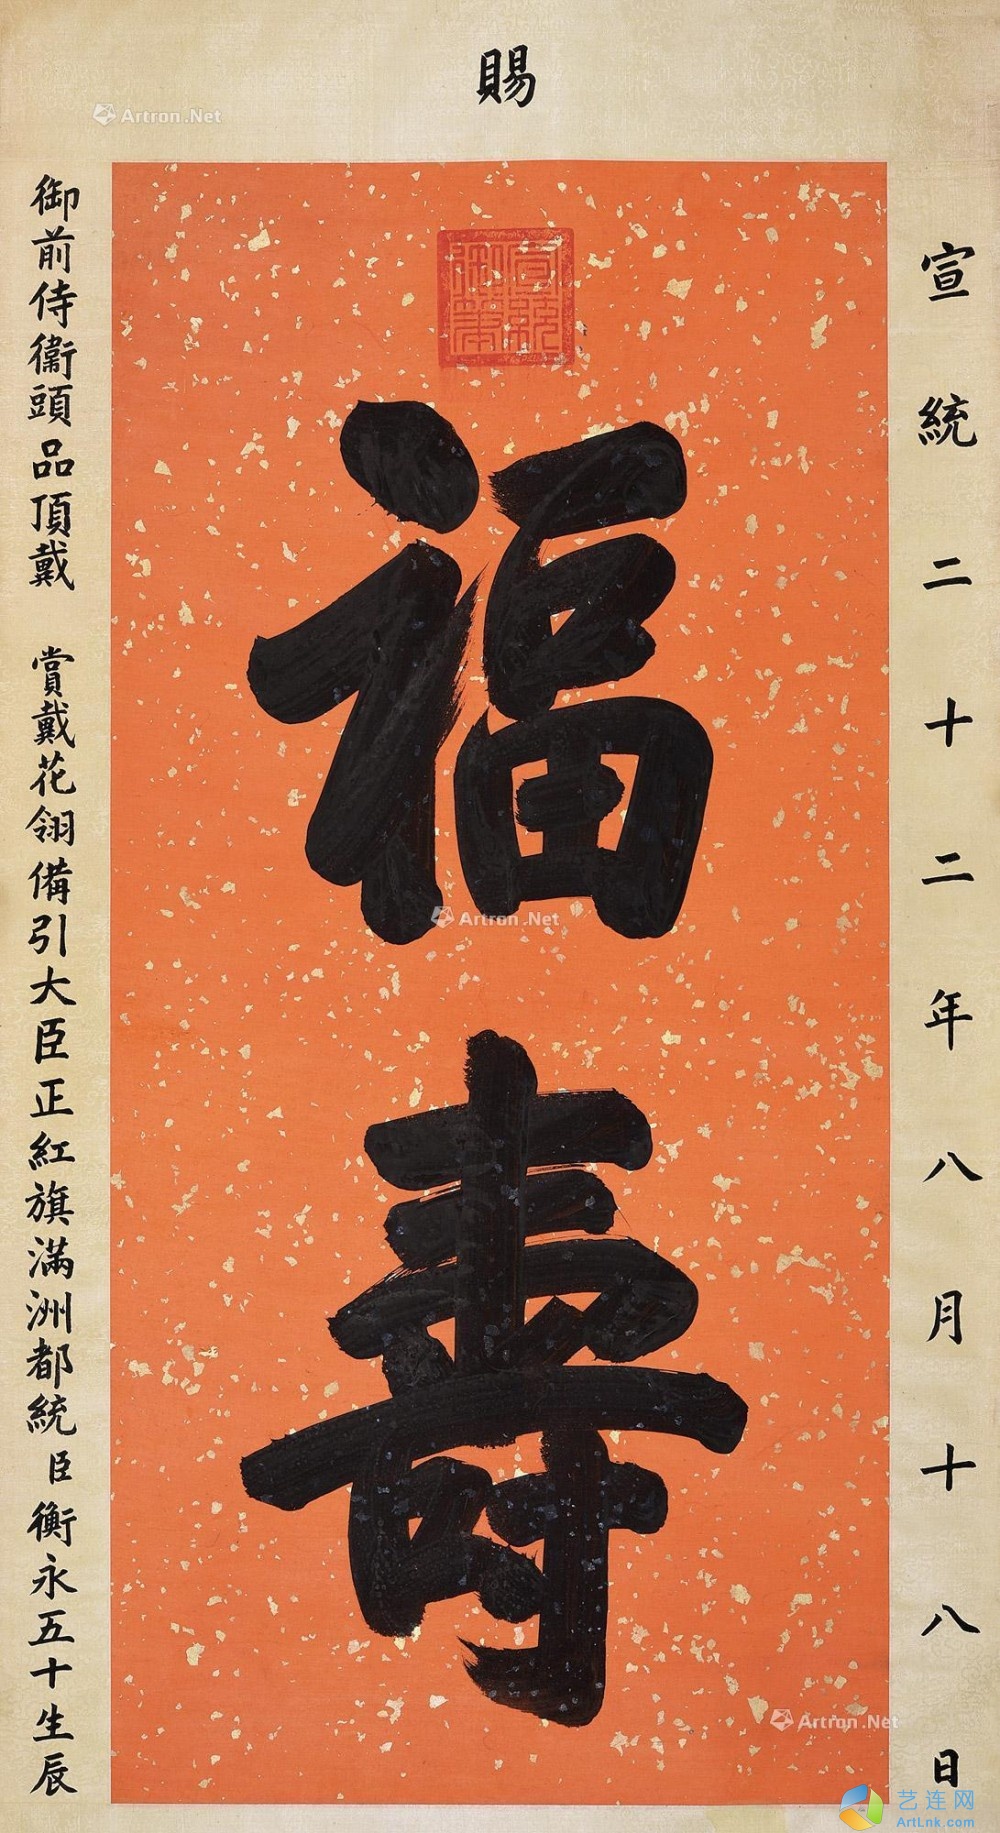 賜
宣統二十二年八月十八日
宣統御筆
福壽
御前侍衞頭品頂戴 賞戴花翎備引大臣正紅旗滿洲都統臣衡永五十生辰
Artron.Net
Artron.Net
Artron.Net
艺连网
ArtLnk.com